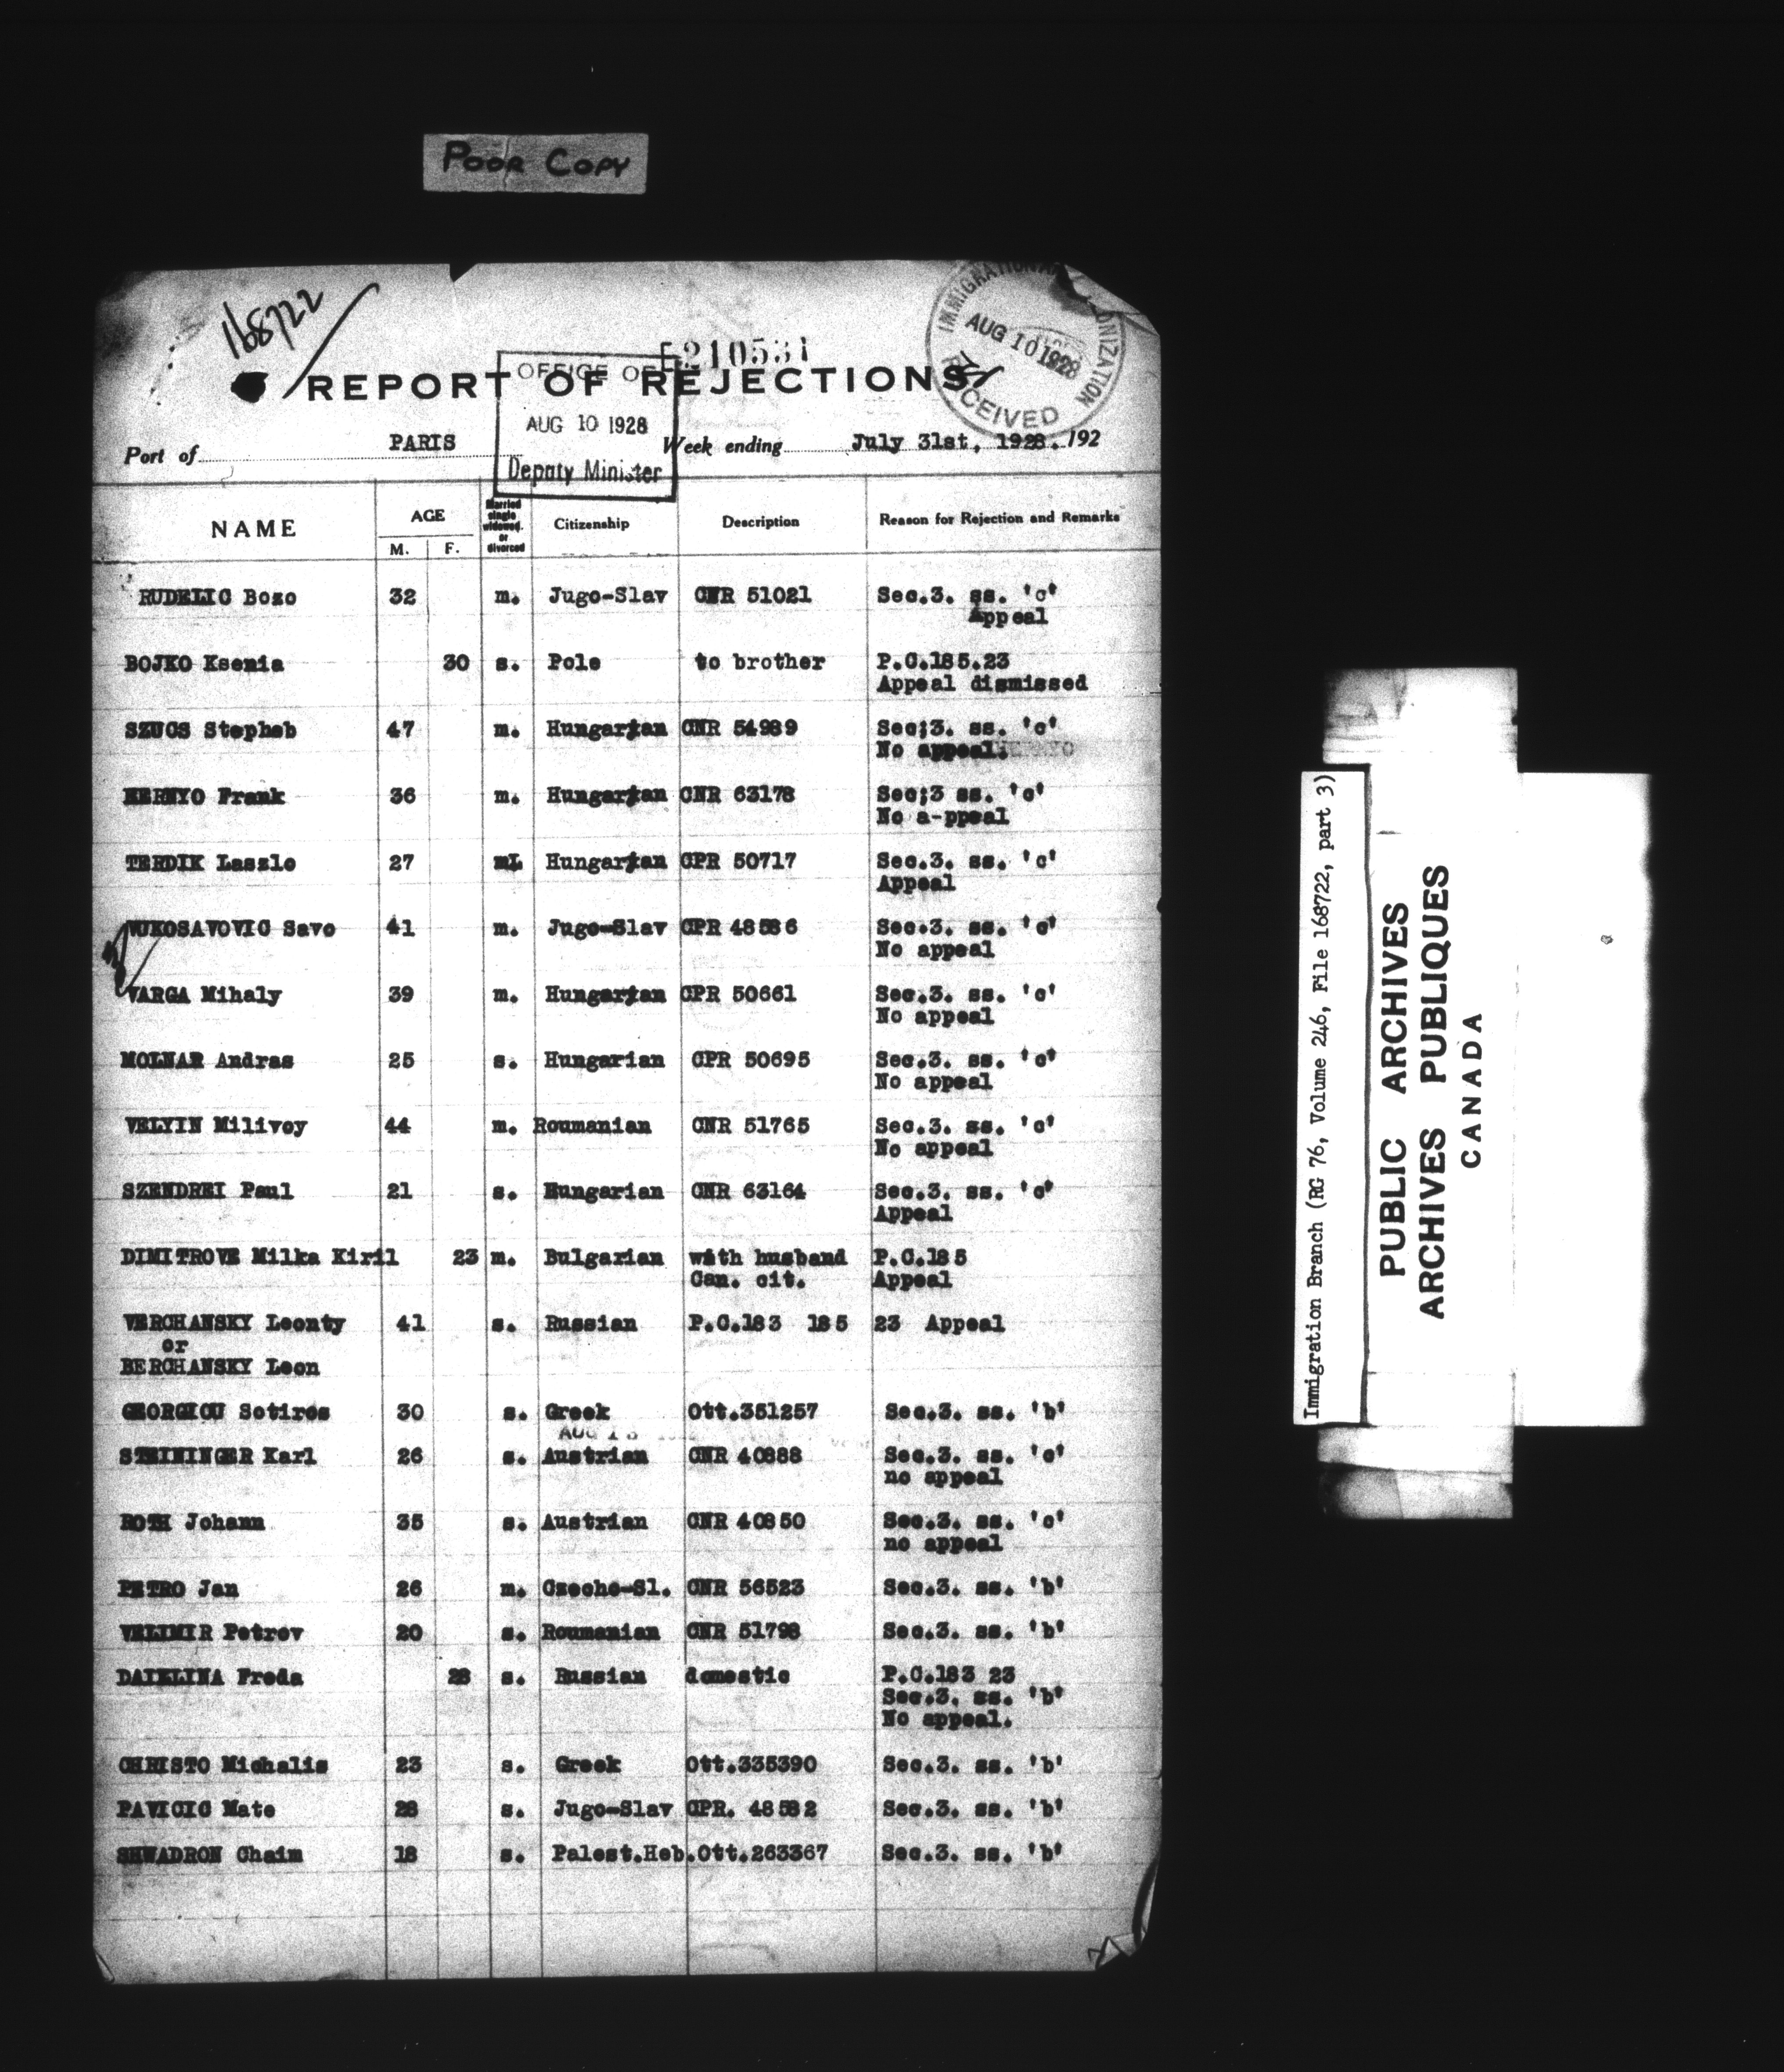 POOR COPY
168722
E210531
IMMIGRATION COLONIZATION
AUG 10 1928
RECEIVED
REPORT OF REJECTIONS
OFFICE OF
AUG 10 1928
Deputy Minister
Port of PARIS Week ending July 31st, 1928. 192
NAME AGE M. F. Married single widowed. or divorced Citizenship Description Reason for Rejection and Remarks
RUDELIC Bozo 32 m. Jugo-Slav CNR 51021 Sec.3. ss. 'c'
Appeal
BOJKO Ksenia 30 s. Pole to brother P.C.185.23
Appeal dismissed
SZUCS Stepheb 47 m. Hungarian CNR 54989 Sec;3. ss. 'c'
No appeal.
KERNYO Frank 36 m. Hungarian CNR 63178 Sec;3 ss. 'c'
No a-ppeal
TERDIK Laszlo 27 mL Hungarian CPR 50717 Sec.3. ss. 'c'
Appeal
VUKOSAVOVIC Savo 41 m. Jugo-Slav CPR 48586 Sec.3. ss. 'c'
No appeal
VARGA Mihaly 39 m. Hungarian CPR 50661 Sec.3. ss. 'c'
No appeal
MOLNAR Andras 25 s. Hungarian CPR 50695 Sec.3. ss. 'c'
No appeal
VELYIN Milivoy 44 m. Roumanian CNR 51765 Sec.3. ss. 'c'
No appeal
SZENDREI Paul 21 s. Hungarian CNR 63164 Sec.3. ss. 'c'
Appeal
DIMITROVE Milka Kiril 23 m. Bulgarian with husband P.C.185
Can. cit. Appeal
VERCHANSKY Leonty 41 s. Russian P.C.183 185 23 Appeal
or
BERCHANSKY Leon
GEORGIOU Sotiros 30 s. Greek Ott.351257 Sec.3. ss. 'b'
STEININGER Karl 26 s. Austrian CNR 40888 Sec.3. ss. 'c'
no appeal
ROTH Johann 35 s. Austrian CNR 40850 Sec.3. ss. 'c'
no appeal
PETRO Jan 26 m. Czecho-Sl. CNR 56523 Sec.3. ss. 'b'
VELIMIR Petrov 20 s. Roumanian CNR 51798 Sec.3. ss. 'b'
DATELINA Freda 28 s. Russian domestic P.C.183 23
Sec.3. ss. 'b'
No appeal.
CHRISTO Michalis 23 s. Greek Ott.335390 Sec.3. ss. 'b'
PAVICIC Mate 28 s. Jugo-Slav CPR. 48582 Sec.3. ss. 'b'
SHWADRON Chaim 18 s. Palest.Heb.Ott.263367 Sec.3. ss. 'b'
Immigration Branch (RG 76, Volume 246, File 168722, part 3)
PUBLIC ARCHIVES
ARCHIVES PUBLIQUES
CANADA